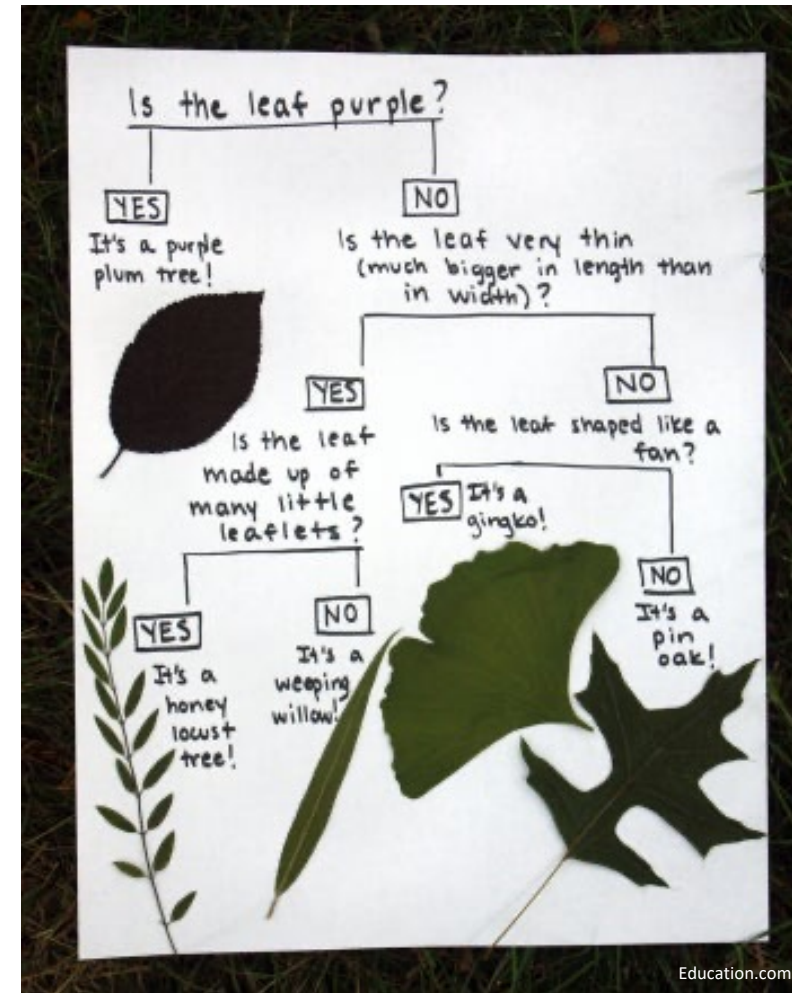 Is the leaf purple?
YES
It's a purple
plum tree!
NO
Is the leaf very thin
(much bigger in length than
in width)?
YES
Is the leaf
made up of
many little
leaflets?
YES
It's a
honey
locust
tree!
NO
It's a
weeping
willow!
NO
Is the leaf shaped like a
fan?
YES It's a
gingko!
NO
It's a
pin
oak!
Education.com